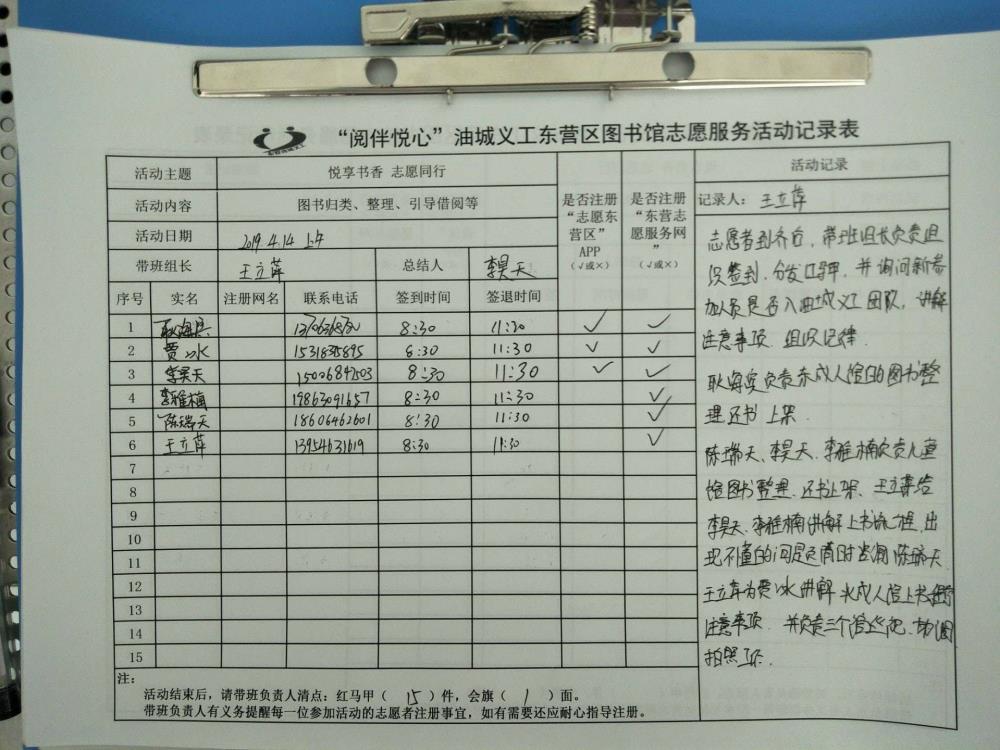 “阅伴悦心”油城义工东营区图书馆志愿服务活动记录表
活动主题 悦享书香 志愿同行
活动内容 图书归类、整理、引导借阅等
活动日期 2019.4.14 上午
带班组长 王立萍 总结人 李昊天
是否注册“志愿东营区”APP（√或×）
是否注册“东营志愿服务网”（√或×）
序号 实名 注册网名 联系电话 签到时间 签退时间
1 8:30 11:30 ✓ ✓
2 贾冰 1531835895 8:30 11:30 ✓ ✓
3 李昊天 15006847503 8:30 11:30 ✓ ✓
4 李雅楠 19863091657 8:30 11:30 ✓
5 陈瑞天 18606462601 8:30 11:30 ✓
6 王立萍 13954631619 8:30 11:30 ✓
7
8
9
10
11
12
13
14
15
注：
活动结束后，请带班负责人清点：红马甲（ 15 ）件，会旗（ 1 ）面。
带班负责人有义务提醒每一位参加活动的志愿者注册事宜，如有需要还应耐心指导注册。
活动记录
记录人：王立萍
志愿者到齐后，带班组长负责组
织签到，分发口哨，并询问新参
加人员是否入油城义工团队，讲解
注意事项，组织纪律．
负责东成人馆的图书整
理还书上架．
陈瑞天、李昊天、李雅楠负责儿童
馆图书整理、还书上架、王立萍给
李昊天、李雅楠讲解上书流程，出
现不懂的问题负责时咨询陈瑞天
王立萍为贾冰讲解 成人馆上书
注意事项． 并负责三个馆 
拍照工作．